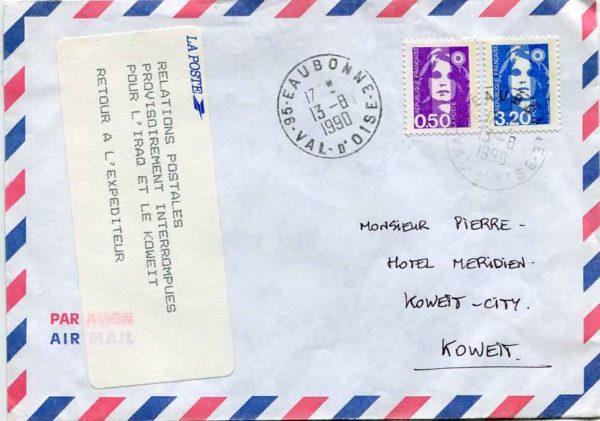 LA POSTE
RELATIONS POSTALES
PROVISOIREMENT INTERROMPUES
POUR L'IRAQ ET LE KOWEIT
RETOUR A L'EXPEDITEUR
PAR AVION
AIR MAIL
EAUBONNE
17 *
13-8
1990
95-VAL-D'OISE
RÉPUBLIQUE FRANÇAISE
0,50
LA POSTE
RÉPUBLIQUE FRANÇAISE
3,20
13-8
1990
MONSIEUR PIERRE -
HOTEL MERIDIEN-
KOWEIT-CITY.
KOWEIT.